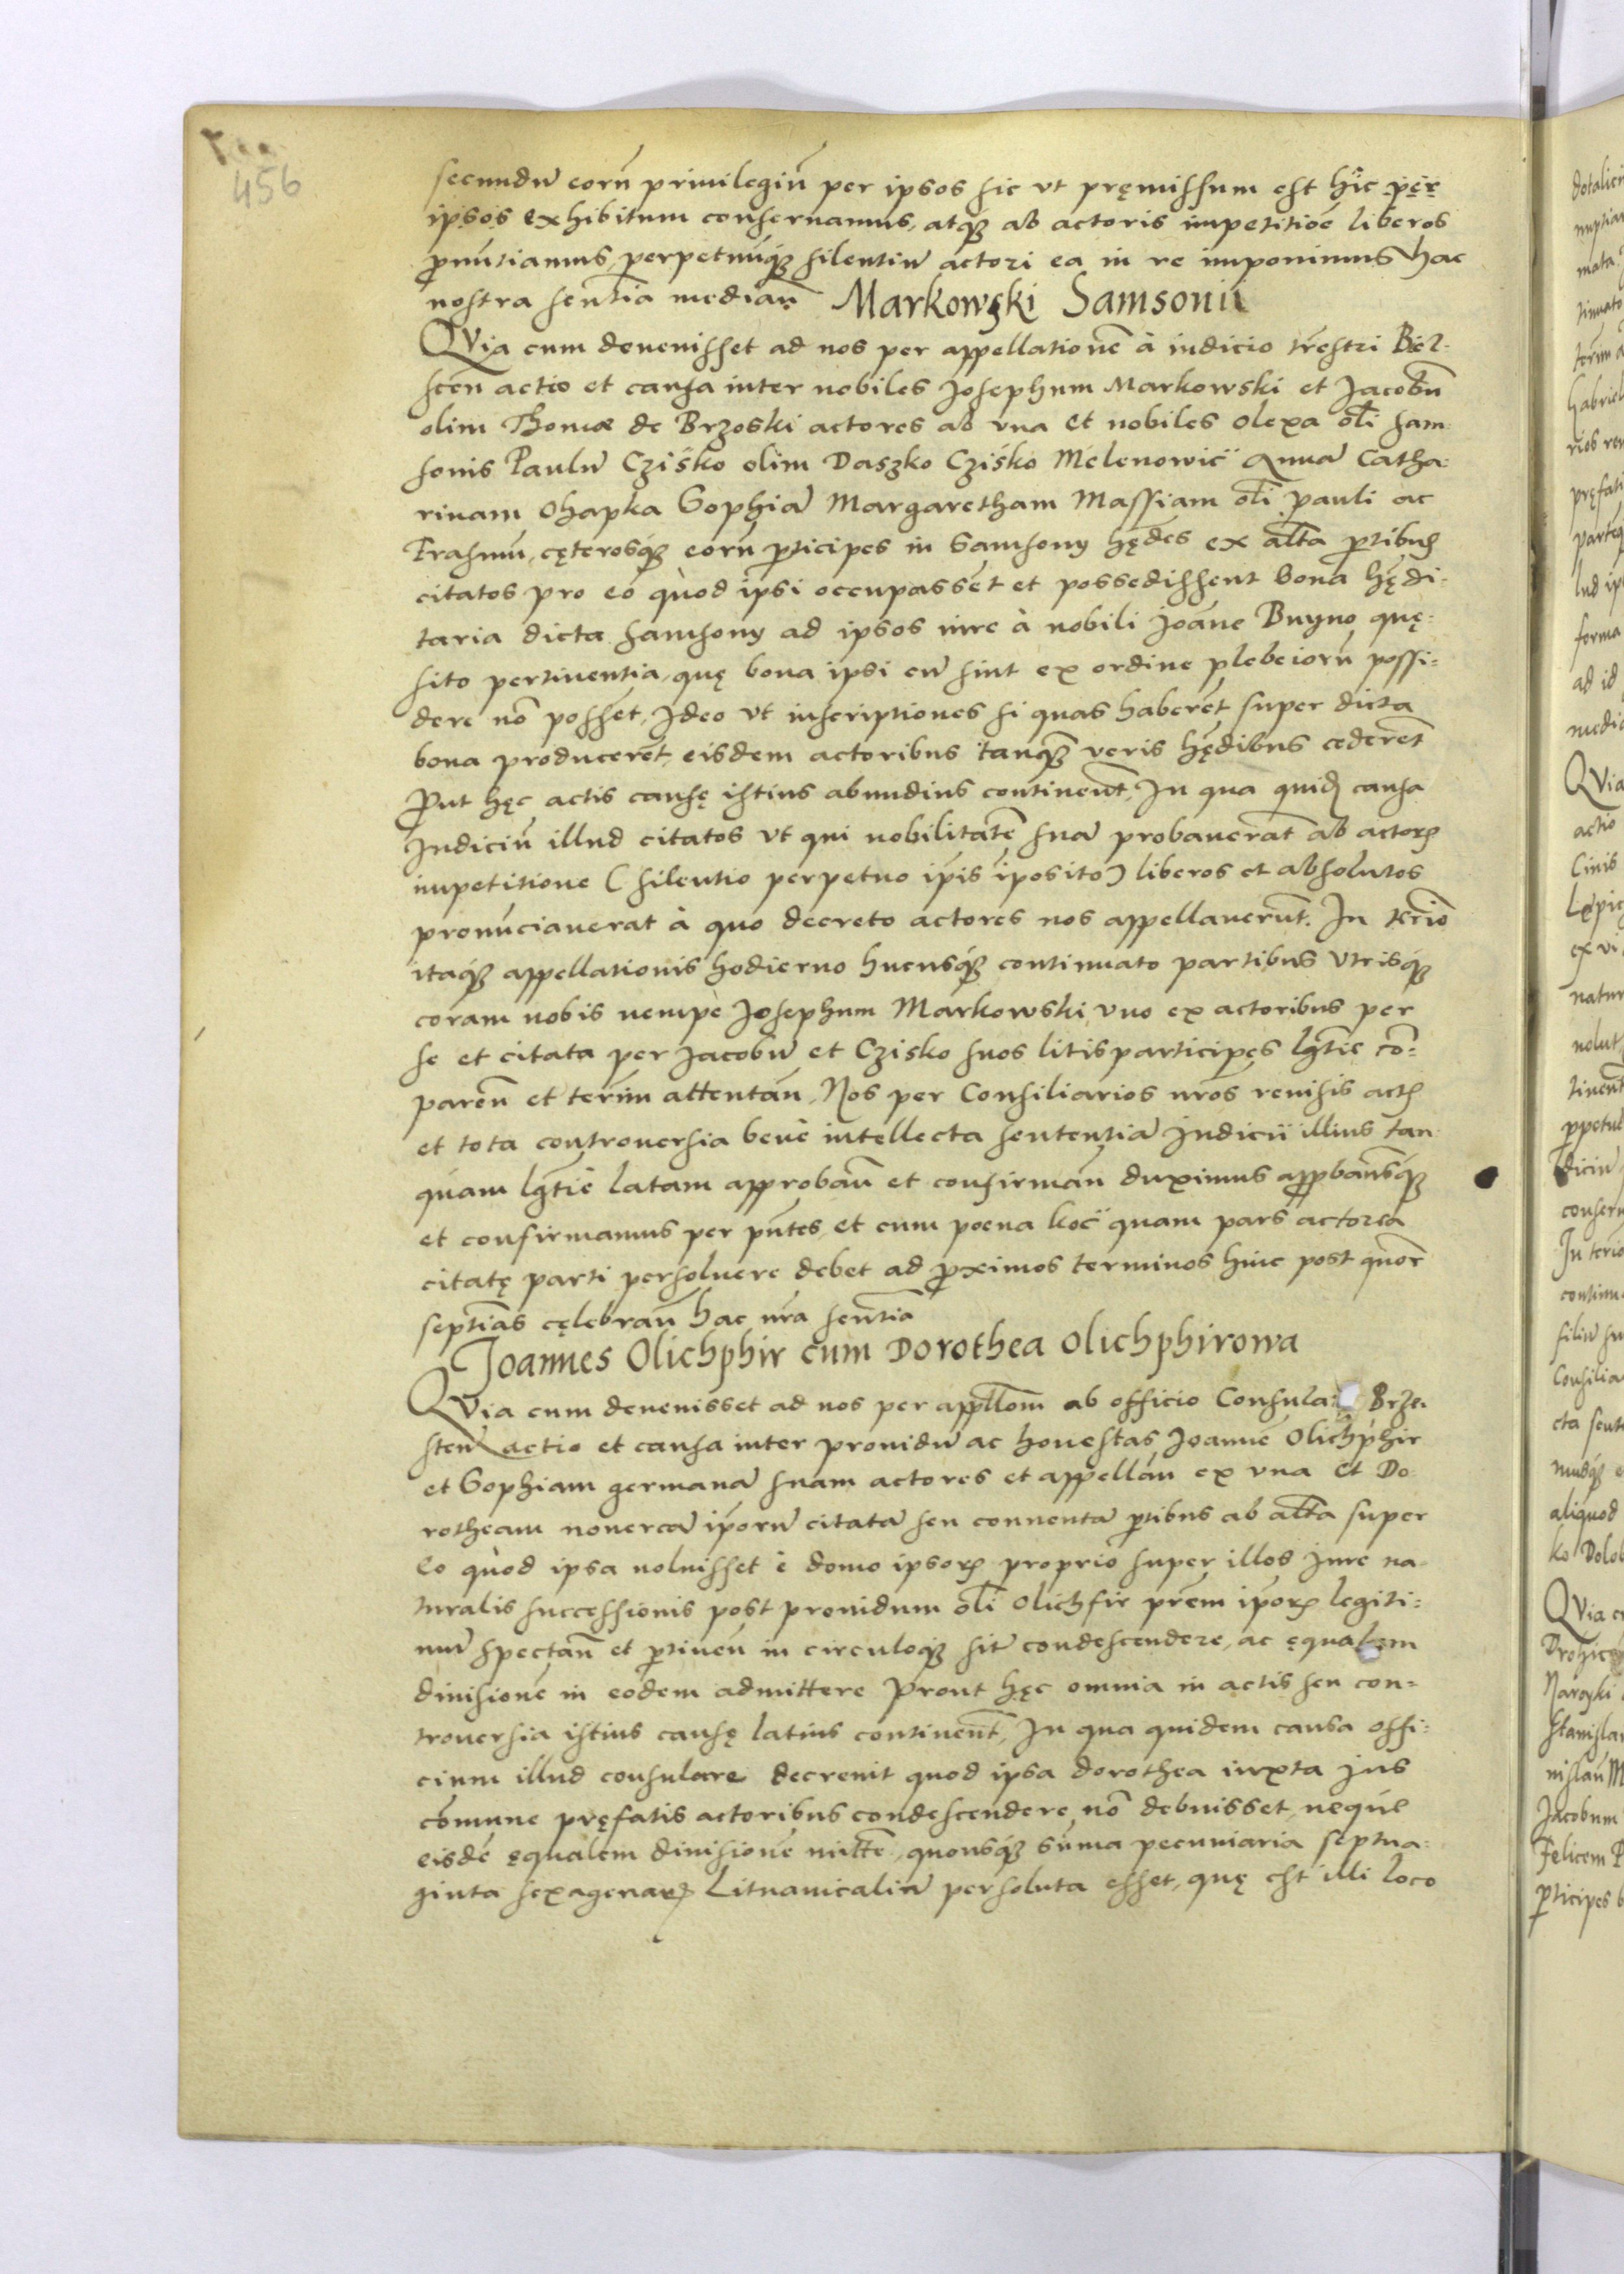 456
secundũ eorũ priuilegiũ per ipsos sic vt pręmissum est hic per
ipsos exhibitum conseruamus, atq3 ab actoris impetitioẽ liberos
p̄nũtiamus, perpetuũq3 silentiũ actori ea in re imponimus hac
nostra sentĩa median̄ Markowski Samsonii
QVia cum deuenisset ad nos per appellationẽ à iudicio tr̃estri Biel-
scen̄ actio et causa inter nobiles Josephum Markowski et Jacobũ
olim Thomæ de Brzoski actores ab vna et nobiles Olexa ol̃i Sam-
sonis Paulũ Czisko olim Daszko Czisko Melenowic̈ Annã Catha-
rinam Ohapka Sophiã Margaretham Massiam ol̃i Pauli ac
Erasmũ, cęterosq3 eorũ p̄ticipes in Samsony hęd̃es ex al̃ta p̄tibus
citatos pro eo quòd ipsi occupassẽt et possedissent bona hędi-
taria dicta Samsony ad ipsos iure à nobili Joãne Buyno quę-
sito pertinentia, quę bona ipsi cũ sint ex ordine plebeiorũ possi-
dere nõ possẽt, Ideo vt inscriptiones si quas haberẽt super dicta
bona producerẽt, eisdem actoribus tanq̃3 veris hędibus cederẽt
Put hęc actis causę istius abundius continenṯ, In qua quid̃ causa
Iudiciũ illud citatos vt qui nobilitatẽ suã probauerãt ab actor̃
impetitione (silentio perpetuo ip̃is ĩposito) liberos et absolutos
pronũciauerat à quo decreto actores nos appellauerũt. In ter̃io
itaq3 appellationis hodierno hucusq3 continuato partibus vtrisq3
coram nobis nempè Josephum Markowski vno ex actoribus per
se et citata per Jacobũ et Czisko suos litis participes lg̃tie cõ-
paren̄ et ter̃im attentan̄, Nos per Consiliarios nr̃os reuisis act̃
et tota controuersia benè intellecta sententiã Iudicii illius tan-
quam lg̃tiè latam approban̄ et confirman̄ duximus app̄bamusq3
et confirmamus per pñtes, et cum poena koc̈ quam pars actorea
citatę parti persoluere debet ad p̄ximos terminos hinc post quor̃
septĩas cęlebran̄ hac nr̃a sentĩa
Joannes Olichphir cum Dorothea Olichphirowa
QVia cum deuenisset ad nos per appl̃lom̃ ab officio Consular Brze-
sten̄ actio et causa inter prouidũ ac honestas Joannẽ Olichphir
et Sophiam germanã suam actores et appellan̄ ex vna et Do-
rotheam nouercã ip̃orũ citatã seu conuentã p̄tibus ab al̃ta super
eo quòd ipsa noluisset è domo ipsor̃ proprio super illos iure na-
turalis successionis post prouidum ol̃i Olichfir pr̃em ip̃or̃ legiti-
mũ spectan̄ et p̄tinen̄ in circuloq3 sit̃ condescendere, ac ęqualem
diuisionẽ in eodem admittere Prout hęc omnia in actis seu con-
trouersia istius causę latius continenṯ, In qua quidem causa offi-
cium illud consulare decreuit quod ipsa Dorothea iuxta jus
cõmune pręfatis actoribus condescendere nõ debuisset, neque
eisdẽ ęqualem diuisionẽ mitt̃e, quousq3 sũma pecuniaria septua-
ginta sexagenar̃ Lituanicaliũ persoluta esset, quę est illi loco